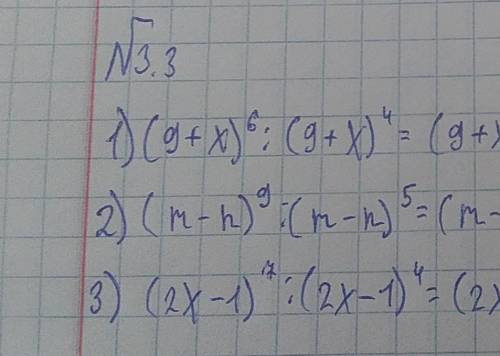 √3.3
1) (9+x)⁶ : (9+x)⁴ = (9+x
2) (m-n)⁹ : (m-n)⁵ = (m-
3) (2x-1)⁷ : (2x-1)⁴ = (2x